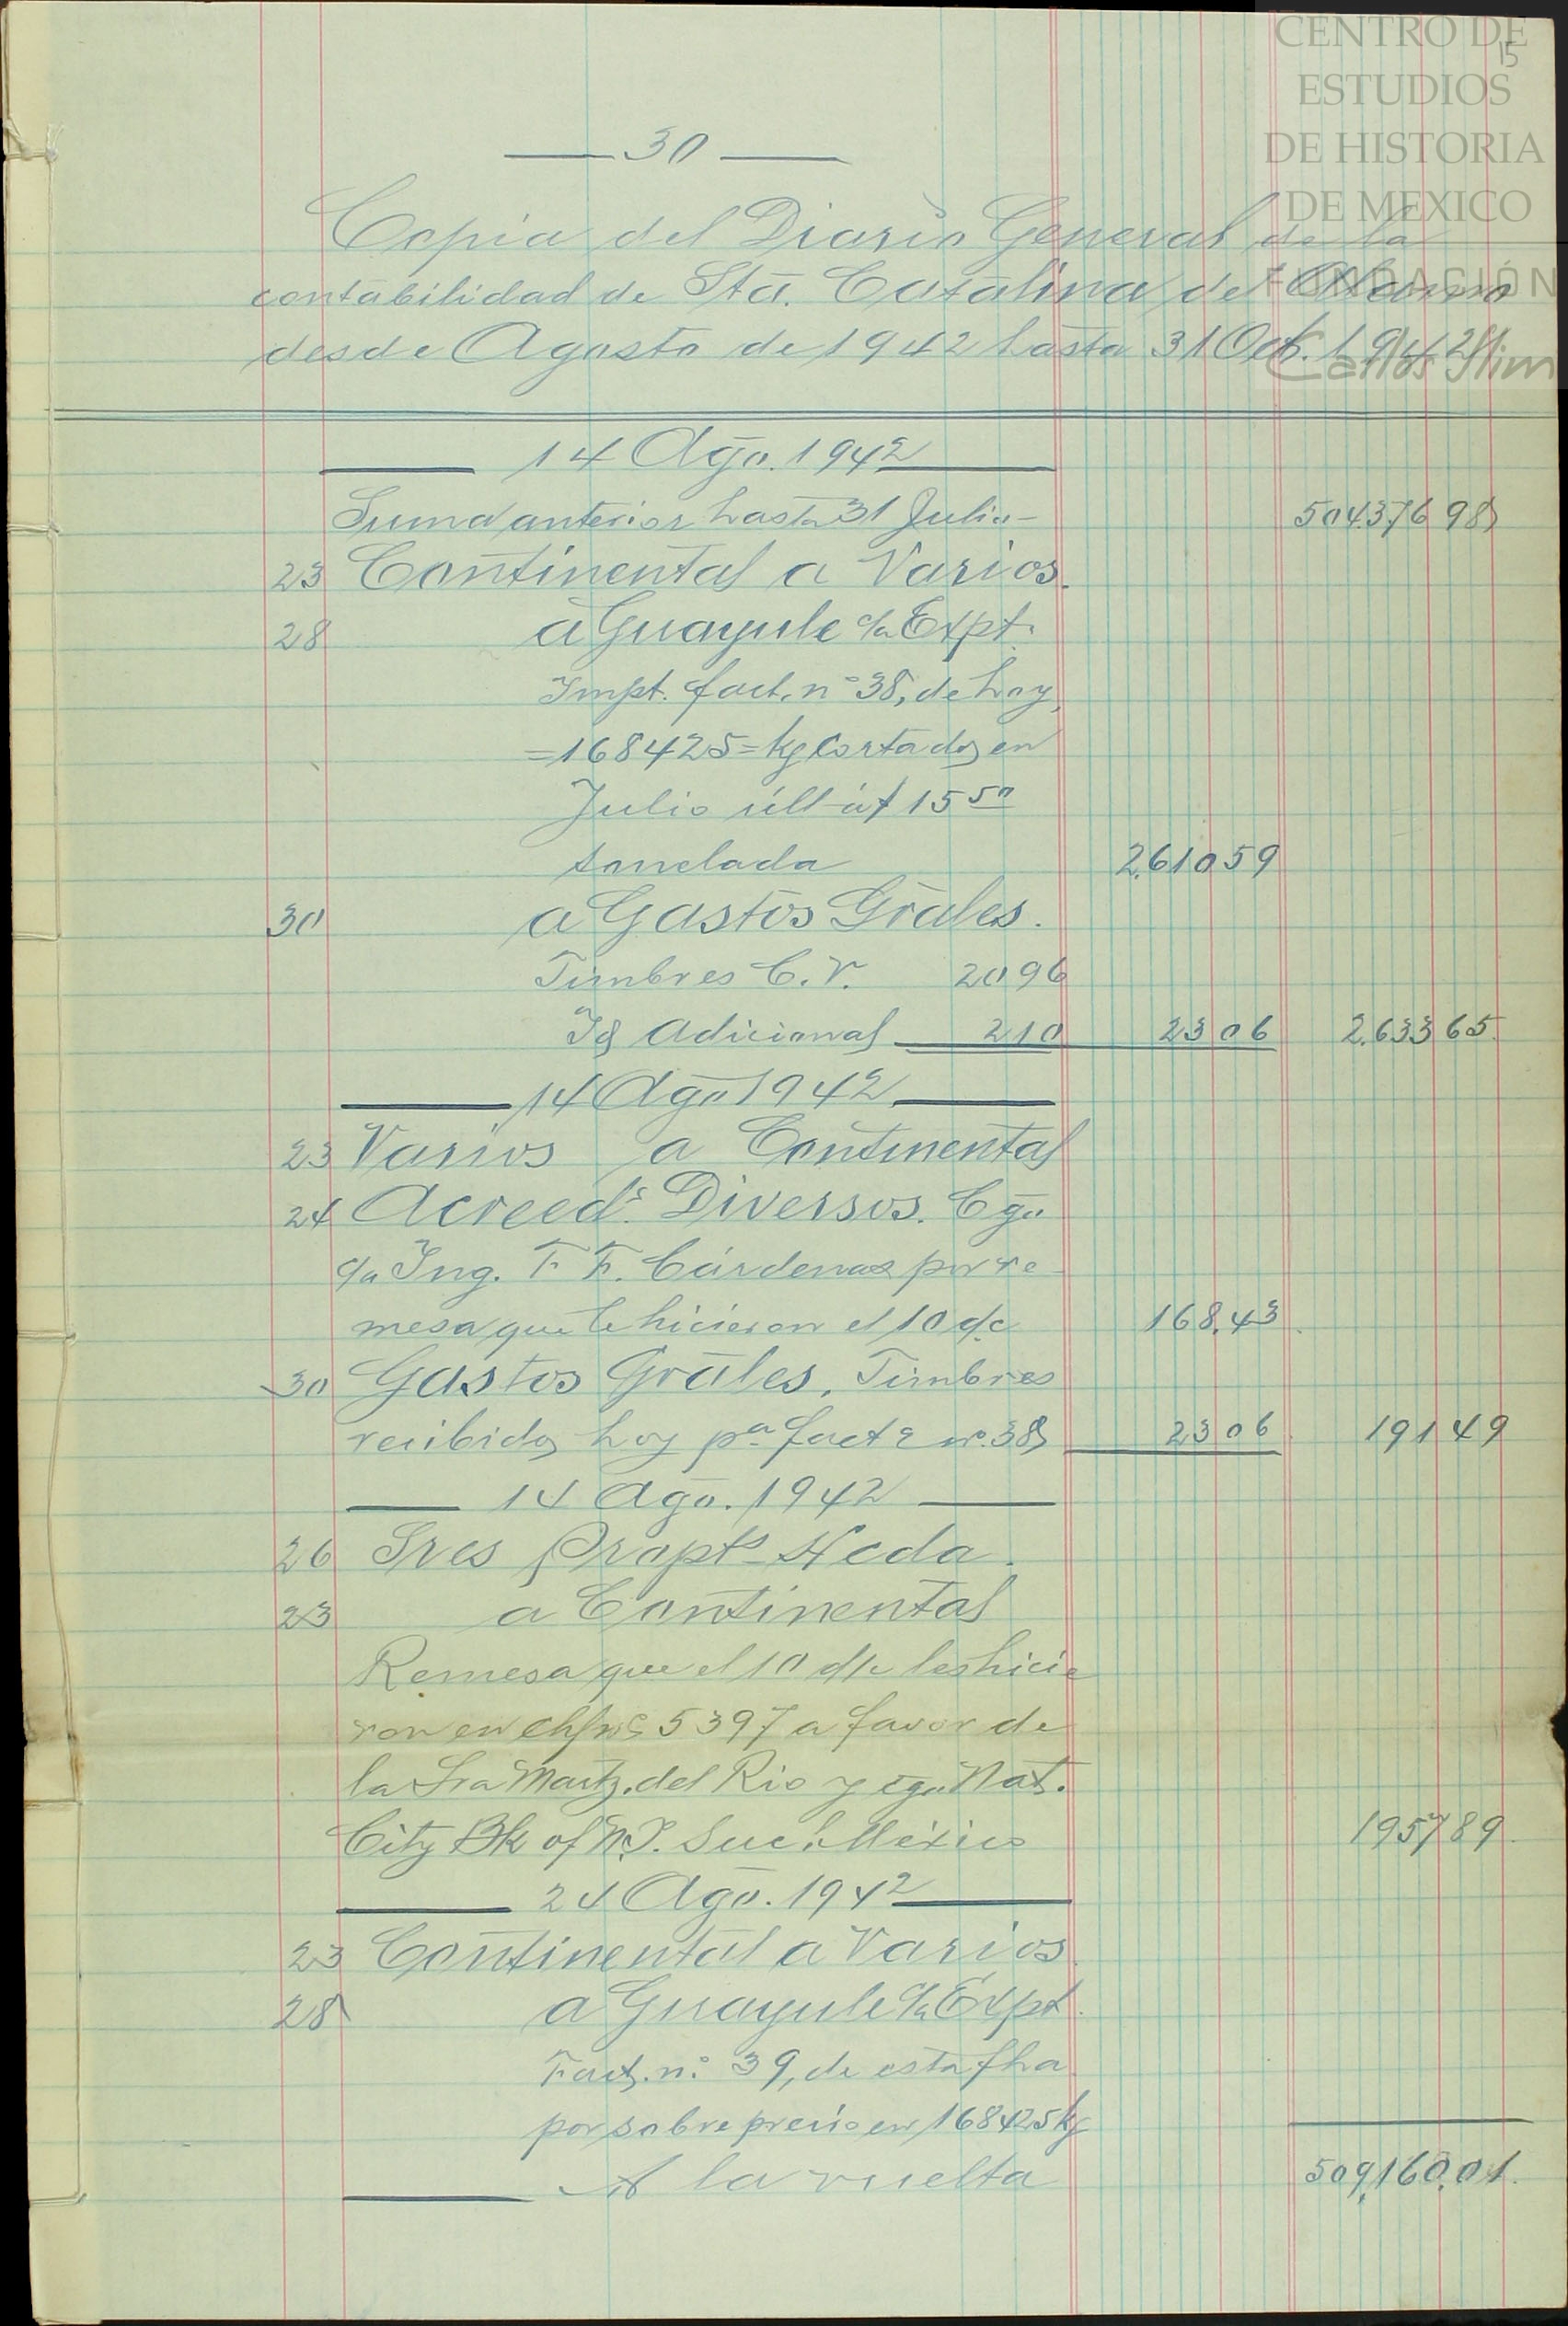 CENTRO DE
ESTUDIOS
DE HISTORIA
DE MEXICO
FUNDACIÓN
Carlos Slim
15
30
Copia del Diario General de la
contabilidad de Sta. Catalina del Alamo
desde Agosto de 1942 hasta 31 Oct. 1942
14 Ago. 1942
Suma anterior hasta 31 Julio- 504.376 98
23 Continental a Varios.
28 a Guayule c/a Expt.
Impt. fact. nº 38, de hoy,
=168425= kg cortados en
Julio últ á $ 15 50
tonelada 2.610 59
30 a Gastos Grales.
Timbres C.V. 20 96
Id Adicional 2 10 23 06 2.633 65
14 Ago 1942
23 Varios a Continental
24 Acreeds. Diversos. Cgo
c/a Ing. F. F. Cárdenas por re-
mesa que le hicieron el 10 d/c 168.43
30 Gastos Grales. Timbres
recibidos hoy pa. fact a nº. 38 23 06 191 49
14 Ago. 1942
26 Sres Propts Hcda.
23 a Continental
Remesa que el 10 d/c les hicie
ron en ch/ nº 5397 a favor de
la Sra Martz. del Rio y cgo Nat.
City Bk of N.Y. Suc. México 1957 89
24 Ago. 1942
23 Continental a Varios
28 a Guayule c/a Expt.
Fact. nº 39, de esta fha
por sobre precio en 168425 kg
A la vuelta 509,160.01